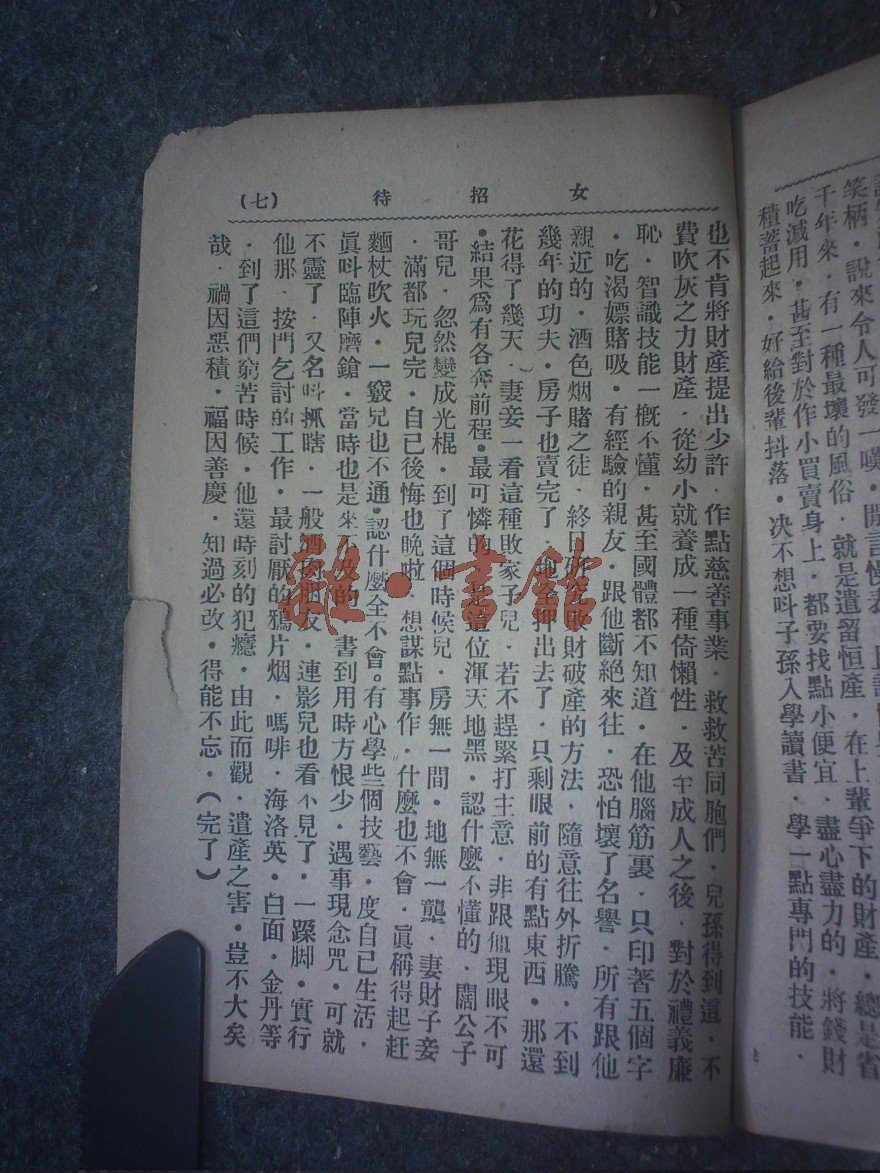 笑柄．說來令人可發一嘆．閒言慢表．
千年來．有一種最壞的風俗．就是遺留恒產．在上輩爭下的財產．總是省
吃減用．甚至對於作小買賣身上．都要找點小便宜．盡心盡力的．將錢財
積蓄起來．好給後輩抖落．决不想呌子孫入學讀書．學一點專門的技能．
女招待
(七)
也不肯將財產提出少許．作點慈善事業．救救苦同胞們．兒孫得到這．不
費吹灰之力財產．從幼小就養成一種倚懶性．及年成人之後．對於禮義廉
恥．智識技能一概不懂．甚至國體都不知道．在他腦筋裏．只印著五個字
．吃渴嫖賭吸．有經驗的親友．跟他斷絕來往．恐怕壞了名譽．所有跟他
親近的．酒色烟賭之徒．終日研究敗財破產的方法．隨意往外折騰．不到
幾年的功夫．房子也賣完了．地多押出去了．只剩眼前的有點東西．那還
花得了幾天．妻妾一看這種敗家子兒．若不趕緊打主意．非跟他現眼不可
．結果爲有各奔前程．最可憐的．是這位渾天地黑．認什麼不懂的．闊公子
哥兒．忽然變成光棍．到了這個時候兒．房無一間．地無一壟．妻財子妾
．滿都玩兒完．自己後悔也晚啦．想謀點事作．什麼也不會．眞稱得起赶
麵杖吹火．一竅兒也不通．認什麼全不會。有心學些個技藝．度自己生活．
眞呌臨陣磨鎗．當時也是來不及的．書到用時方恨少．遇事現念咒．可就
不靈了．又名呌抓瞎．一般酒肉朋友．連影兒也看不見了．一跺脚．實行
他那．按門乞討的工作．最討厭的鴉片烟．嗎啡．海洛英．白面．金丹等
．到了這們窮苦時候．他還時刻的犯癮．由此而觀．遺產之害．豈不大矣
哉．禍因惡積．福因善慶．知過必改．得能不忘．(完了)
雜·書館